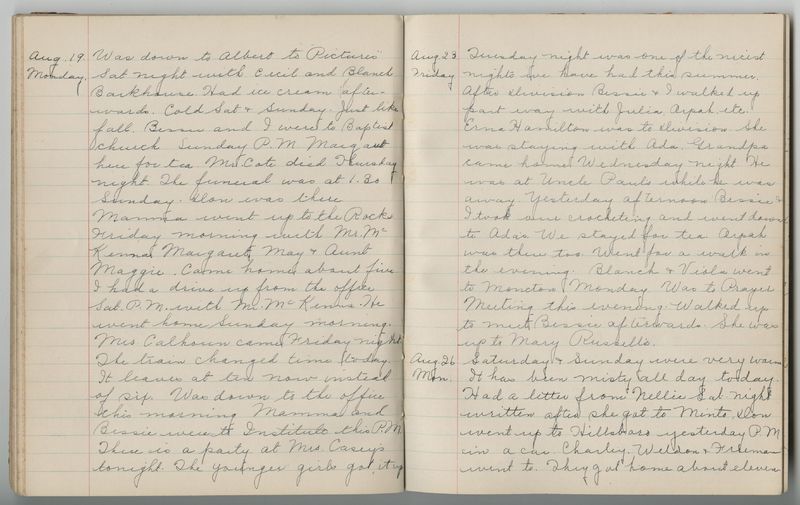 Aug. 19. Was down to Albert to "Pictures"
Monday Sat night with Cecil and Blanch
Barkhouse. Had ice cream after-
wards. Cold Sat & Sunday. Just like
fall. Bessie and I were to Baptist
church Sunday P.M. Margaret
here for tea. Mr. Cote died Thursday
night. The funeral was at 1.30
Sunday. Don was there
Mamma went up to the Rocks
Friday morning with Mr. Mc
Kenna Margaret, May & Aunt
Maggie. Came home about five
I had a drive up from the office
Sat. P.M. with Mr. McKenna. He
went home Sunday morning.
Mrs Calhoun came Friday night.
The train changed time today.
It leaves at ten now instead
of six. Was down to the office
this morning Mamma and
Bessie were to Institute this P.M.
There is a party at Mrs. Casey's
tonight. The younger girls got it up
Aug 23 Tuesday night was one of the nicest
Friday nights we have had this summer.
After division Bessie & I walked up
part way with Julia, Arpah, etc.
Erna Hamilton was to division. She
was staying with Ada. Grandpa
came home Wednesday night. He
was at Uncle Pauls while he was
away. Yesterday afternoon Bessie &
I took our crocheting and went down
to Ada's. We stayed for tea. Arpah
was there too. Went for a walk in
the evening. Blanch & Viola went
to Moncton Monday. Was to Prayer
Meeting this evening. Walked up
to meet Bessie afterwards. She was
up to Mary Russell's.
Aug. 26 Saturday & Sunday were very warm
Mon. It has been misty all day today.
Had a letter from Nellie Sat. night
written after she got to Minto. Don
went up to Hillsboro yesterday P.M.
in a car. Charley, Weldon & Freeman
went to. They got home about eleven